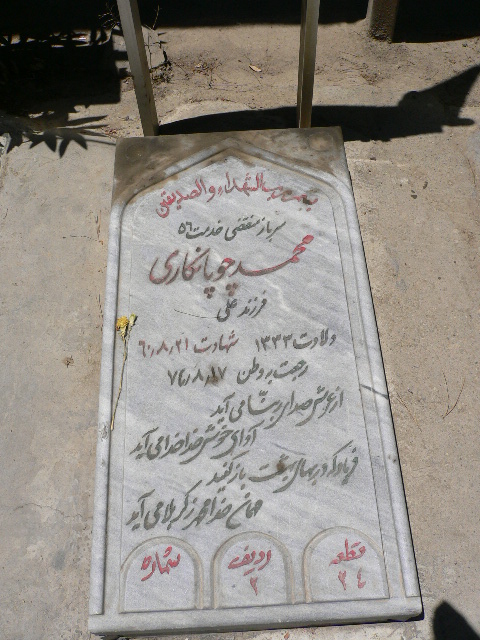 بسم رب الشهداء والصدیقین
سرباز منقضی خدمت ۵۶
محمد چوپانکاری
فرزند علی
ولادت ۱۳۳۳ شهادت ۶۰،۸،۲۱
رجعت به وطن ۷۶،۸،۱۷
از عرش صدای ربنا می آید
آوای خوش خدا خدا می آید
فریاد که درهای بهشت باز کنید
مهمان خدا ز کربلا می آید
قطعه ۲۴
ردیف ۲
شماره